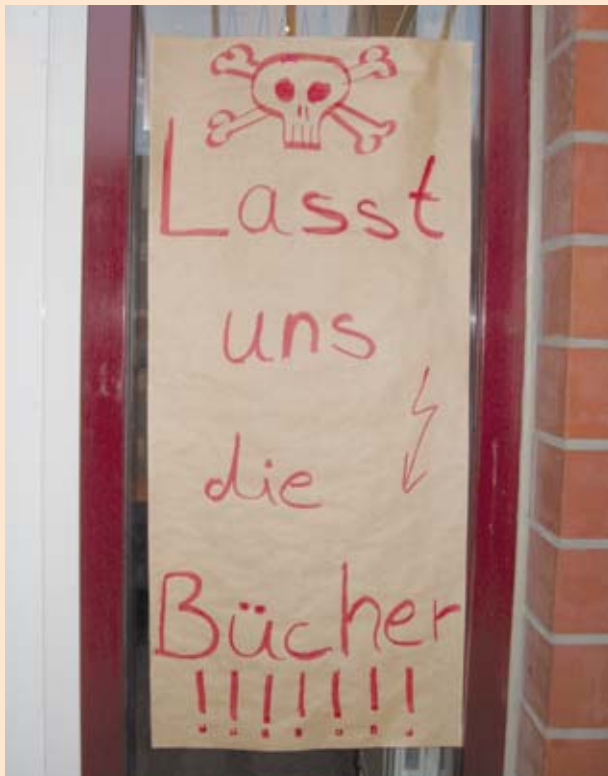 Lasst
uns
die
Bücher
!!!!!!!